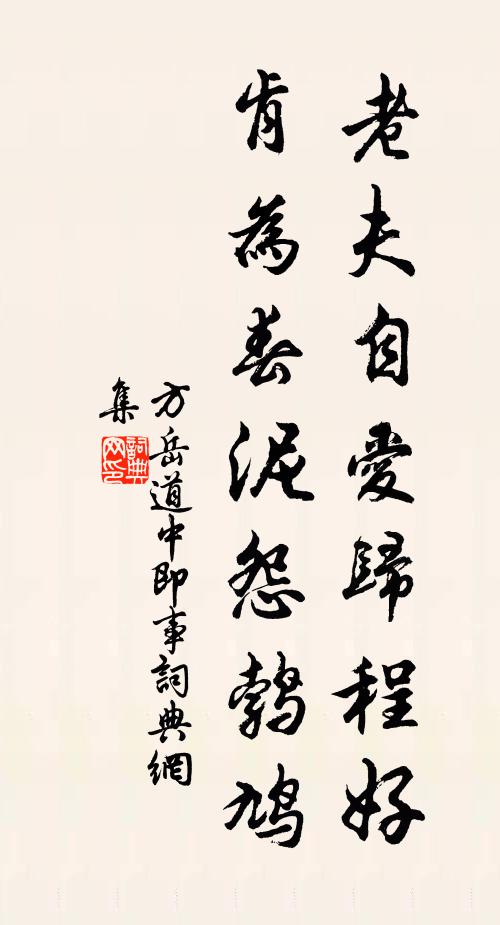 老夫自愛歸程好
肯為春泥怨鵓鳩
方岳道中即事詞典網
集
詞典
网印